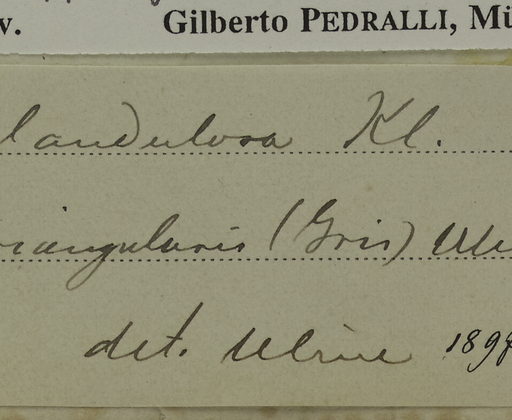 v. Gilberto PEDRALLI, Mü
landulosa Kl.
riangularis (Gris) Ule
det. Uline 189